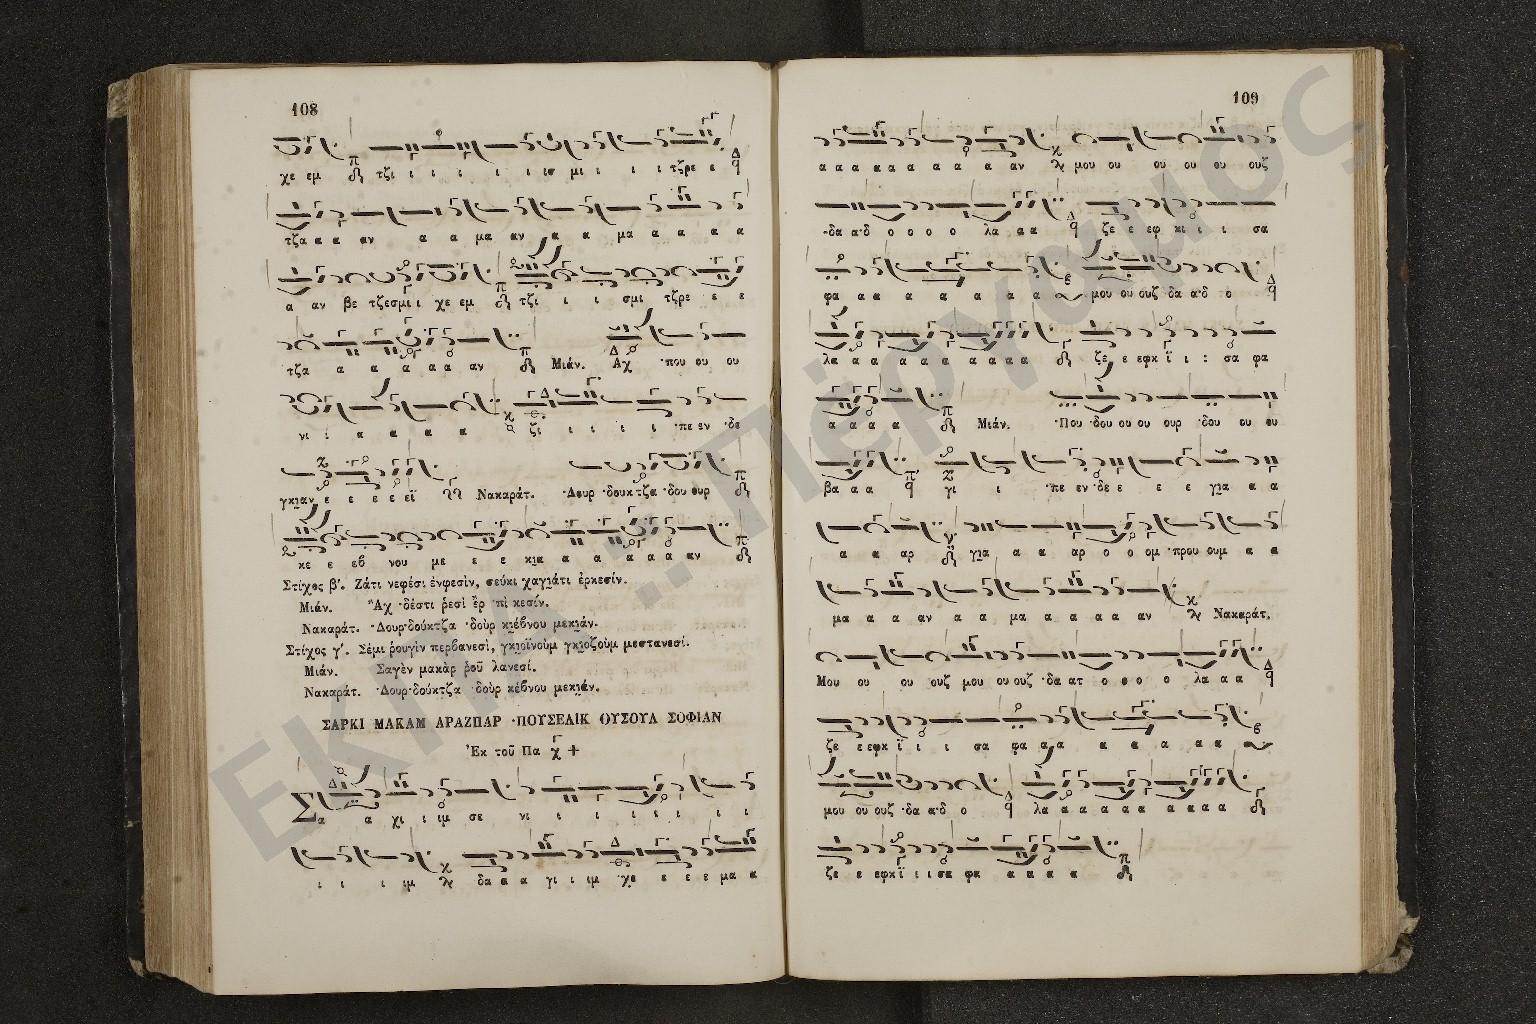 108
χε εμ τζι ι ι ι ι ι ισ μι ι ι ι τζρε ε
τζα α α αν α α μα αν α α μα α α α α
α αν βε τζεσμι ι χε εμ τζι ι ι ι σμι τζρε ε ε
τζα α α α α α αν Μιάν. Αχ ·που ου ου
νι ι α α α α ζι ι ι ι ι ·πε εν ·δε
γκιαν ε ε ε ε εϊ Νακαράτ. ·Δουρ ·δουκτζα ·δου ουρ
κε ε εβ νου με ε ε κια α α α α α αν
Στίχος β'. Ζάτι νεφέσι ἐνφεσὶν, σεύκι χαγιάτι ἐρκεσίν.
Μιάν. Ἂχ ·δέστι ῥεσὶ ἒρ ·πὶ κεσίν.
Νακαράτ. ·Δουρ·δούκτζα ·δοὺρ κιέβνου μεκιάν.
Στίχος γ'. Σέμι ῥουγὶν περβανεσὶ, γκιοϊνοὺμ γκιοζοὺμ μεστανεσί.
Μιάν. Σαγὲν μακὰρ ῥοῦ λανεσί.
Νακαράτ. ·Δουρ·δούκτζα ·δοὺρ κέβνου μεκιάν.
ΣΑΡΚΙ ΜΑΚΑΜ ΑΡΑΖΠΑΡ ·ΠΟΥΣΕΛΙΚ ΟΥΣΟΥΛ ΣΟΦΙΑΝ
Ἐκ τοῦ Πα
Σα α χι ι ιμ σε νι ι ι ι ι ι ι ι
ι ι ι ιμ δα α α γι ι ιμ ·χε ε ε ε μα α
109
α α α α α α α α α αν μου ου ου ου ου ουζ
·δα α·δ ο ο ο ο λα α α ζε ε εφ κι ι ι σα
φα α α α α α α α μου ου ουζ ·δα α·δ ο
λα α α α α α α α α α ζε ε εφκ ϊ ι : σα φα
α α α α Μιάν. ·Που ·δου ου ου ουρ ·δου ου ου
βα α α γι ι ·πε εν ·δε ε ε ε για α α
α α αρ για α α αρ ο ο ομ ·πρου ουμ α α
μα α α αν α α μα α α α α αν Νακαράτ.
Μου ου ου ουζ μου ου ουζ ·δα ατ ο ο ο ο λα α α
ζε ε εφκ ϊ ι ι σα φα α α α α α α α
μου ου ουζ ·δα α·δ ο λα α α α α α α α α α
ζε ε εφκ ϊ ι ι σα φα α α α α